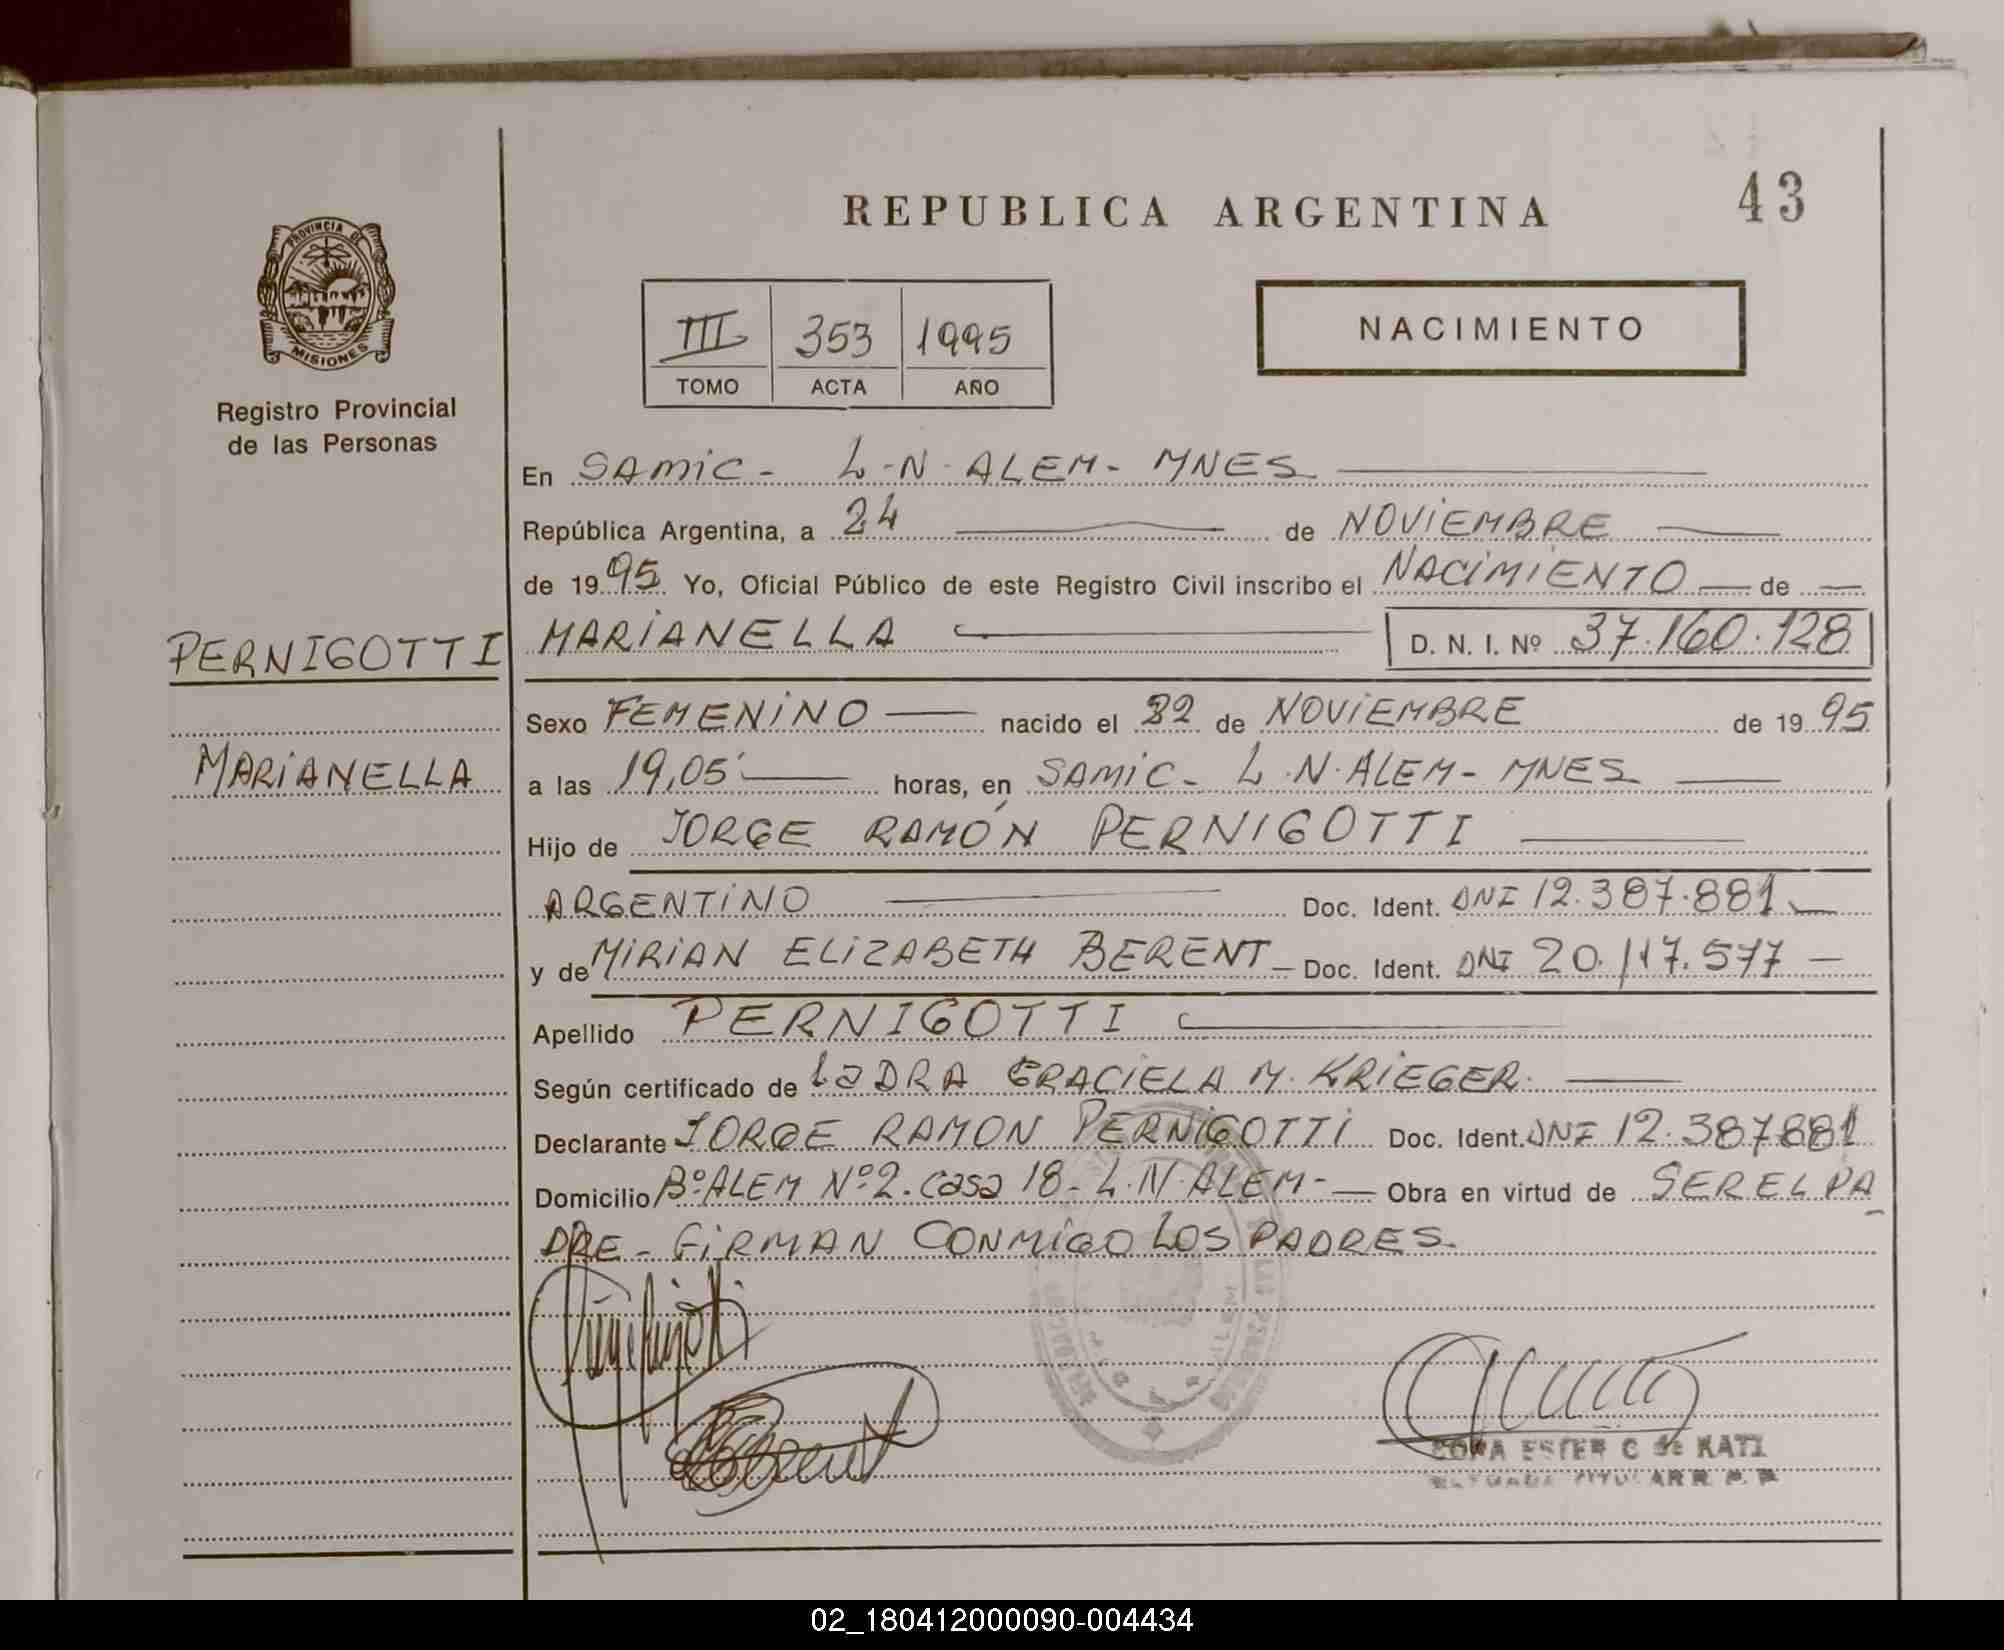 REPUBLICA ARGENTINA
43
PROVINCIA DE
MISIONES
Registro Provincial
de las Personas
III 353 1995
TOMO ACTA AÑO
NACIMIENTO
En SAMIC - L.N. ALEM - MNES
República Argentina, a 24 de NOVIEMBRE
de 1995 Yo, Oficial Público de este Registro Civil inscribo el NACIMIENTO de
PERNIGOTTI
MARIANELLA D. N. I. Nº 37.160.128
Sexo FEMENINO nacido el 22 de NOVIEMBRE de 1995
MARIANELLA
a las 19,05' horas, en SAMIC - L.N. ALEM - MNES
Hijo de JORGE RAMÓN PERNIGOTTI
ARGENTINO Doc. Ident. DNI 12.387.881
y de MIRIAN ELIZABETH BERENT - Doc. Ident. DNI 20.117.577
Apellido PERNIGOTTI
Según certificado de La DRA GRACIELA M. KRIEGER.
Declarante JORGE RAMON PERNIGOTTI Doc. Ident. DNI 12.387881
Domicilio Bº ALEM Nº 2. Casa 18 - L.N. ALEM - Obra en virtud de SER EL PA
DRE - FIRMAN CONMIGO LOS PADRES.
ESTER C de KATI
02_180412000090-004434